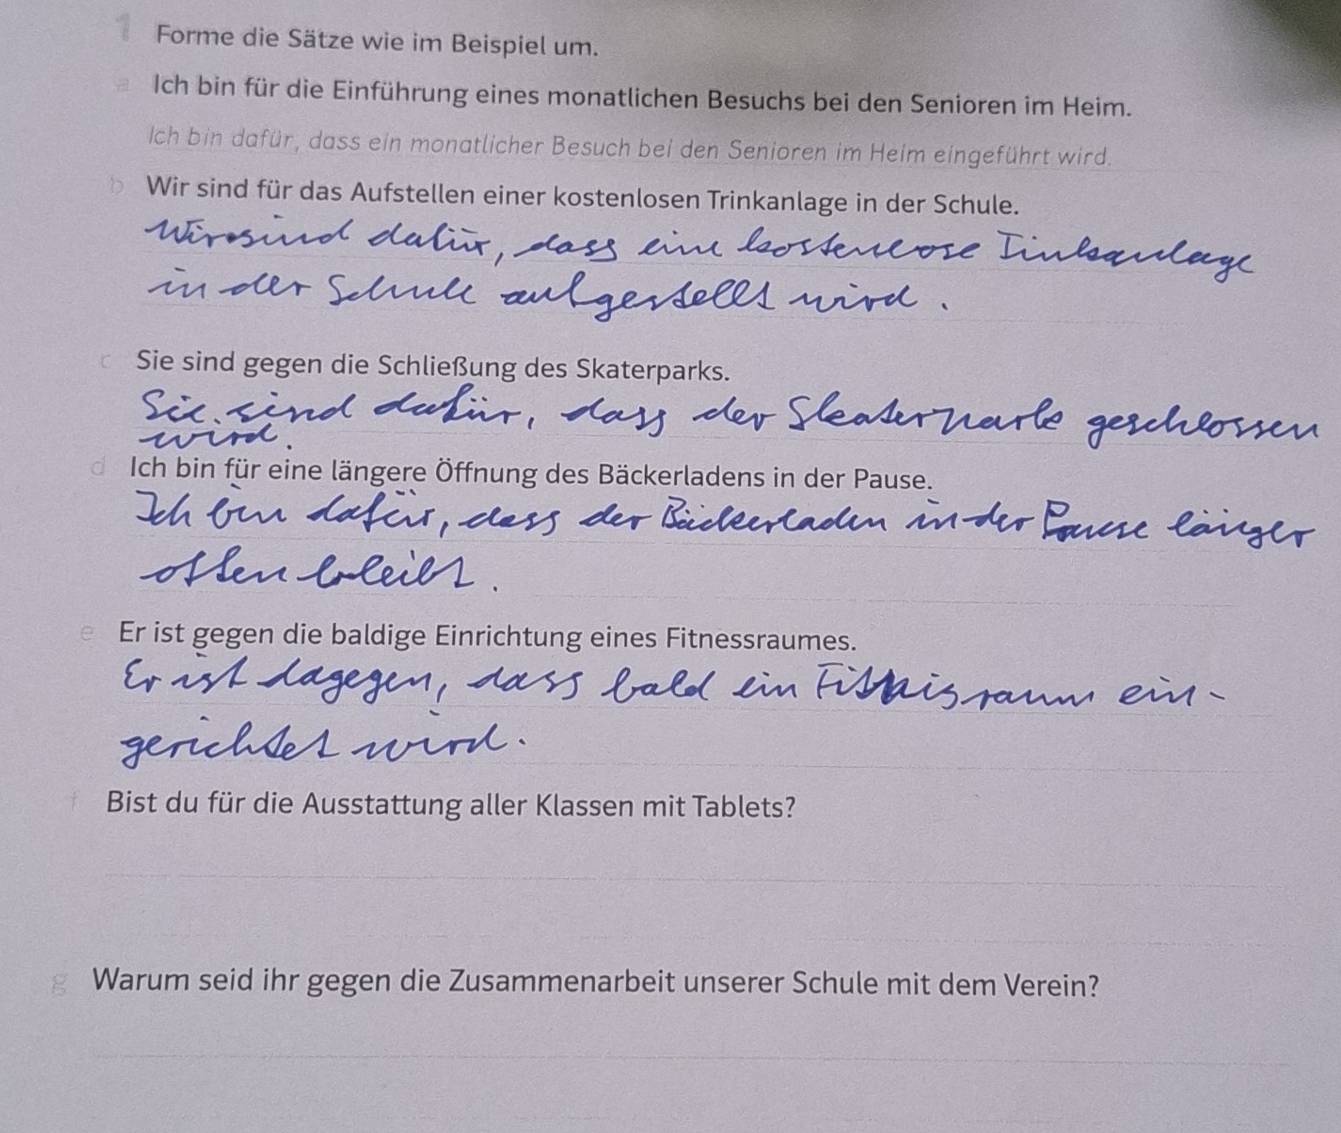 1 Forme die Sätze wie im Beispiel um.
a Ich bin für die Einführung eines monatlichen Besuchs bei den Senioren im Heim.
Ich bin dafür, dass ein monatlicher Besuch bei den Senioren im Heim eingeführt wird.
b Wir sind für das Aufstellen einer kostenlosen Trinkanlage in der Schule.
Wir sind dafür, dass eine kostenlose Tinkanlage
in der Schule aufgestellt wird.
c Sie sind gegen die Schließung des Skaterparks.
Sie sind dafür, dass der Skaterpark geschlossen
wird.
d Ich bin für eine längere Öffnung des Bäckerladens in der Pause.
Ich bin dafür, dass der Bäckerladen in der Pause länger
offen bleibt.
e Er ist gegen die baldige Einrichtung eines Fitnessraumes.
Er ist dagegen, dass bald ein Fitnisraum ein-
gerichtet wird.
f Bist du für die Ausstattung aller Klassen mit Tablets?
g Warum seid ihr gegen die Zusammenarbeit unserer Schule mit dem Verein?